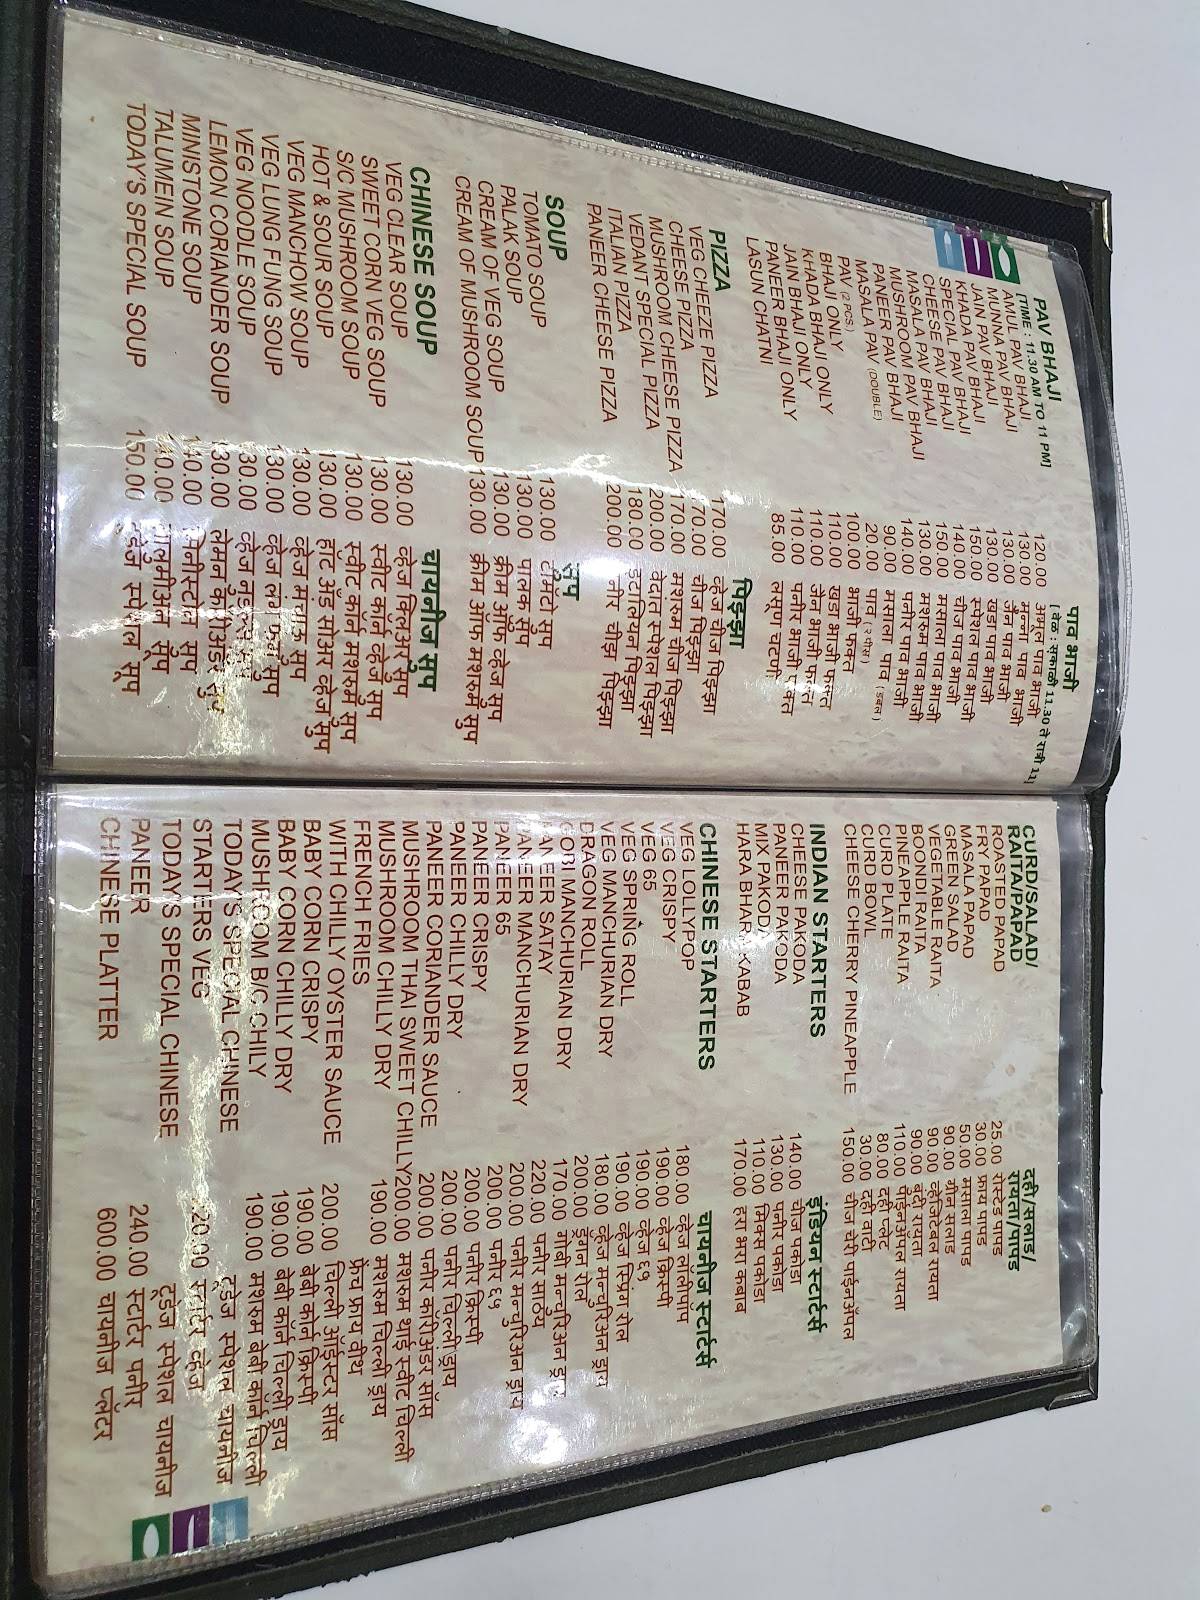 PAV BHAJI पाव भाजी
[TIME : 11.30 AM TO 11 PM] [वेळ : सकाळी 11.30 ते रात्री 11]
AMUL PAV BHAJI 120.00 अमूल पाव भाजी
MUNNA PAV BHAJI 130.00 मुन्ना पाव भाजी
JAIN PAV BHAJI 130.00 जैन पाव भाजी
KHADA PAV BHAJI 130.00 खडा पाव भाजी
SPECIAL PAV BHAJI 150.00 स्पेशल पाव भाजी
CHEESE PAV BHAJI 140.00 चीज पाव भाजी
MASALA PAV BHAJI 150.00 मसाला पाव भाजी
MUSHROOM PAV BHAJI 130.00 मशरुम पाव भाजी
PANEER PAV BHAJI 140.00 पनीर पाव भाजी
MASALA PAV (DOUBLE) 90.00 मसाला पाव (डबल)
PAV (2 PCS.) 20.00 पाव (२ पीस)
BHAJI ONLY 100.00 भाजी फक्त
KHADA BHAJI ONLY 110.00 खडा भाजी फक्त
JAIN BHAJI ONLY 110.00 जैन भाजी फक्त
PANEER BHAJI ONLY 110.00 पनीर भाजी फक्त
LASUN CHATNI 85.00 लसूण चटणी
PIZZA पिझ्झा
VEG CHEEZE PIZZA 170.00 व्हेज चीज पिझ्झा
CHEESE PIZZA 170.00 चीज पिझ्झा
MUSHROOM CHEESE PIZZA 170.00 मशरुम चीज पिझ्झा
VEDANT SPECIAL PIZZA 200.00 वेदांत स्पेशल पिझ्झा
ITALIAN PIZZA 180.00 इटालियन पिझ्झा
PANEER CHEESE PIZZA 200.00 पनीर चीझ पिझ्झा
SOUP सुप
TOMATO SOUP 130.00 टुमॅटो सुप
PALAK SOUP 130.00 पालक सुप
CREAM OF VEG SOUP 130.00 क्रीम ऑफ व्हेज सुप
CREAM OF MUSHROOM SOUP 130.00 क्रीम ऑफ मशरुम सुप
CHINESE SOUP चायनीज सुप
VEG CLEAR SOUP 130.00 व्हेज क्लिअर सुप
SWEET CORN VEG SOUP 130.00 स्वीट कॉर्न व्हेज सुप
S/C MUSHROOM SOUP 130.00 स्वीट कॉर्न मशरुम सुप
HOT & SOUR SOUP 130.00 हॉट अँड सोअर व्हेज सुप
VEG MANCHOW SOUP 130.00 व्हेज मंचाऊ सुप
VEG LUNG FUNG SOUP 130.00 व्हेज लंग फंग सुप
VEG NOODLE SOUP 130.00 व्हेज नुडल्स सुप
LEMON CORIANDER SOUP 130.00 लेमन कोरीअंडर सुप
MINISTONE SOUP 140.00 मिनीस्टोन सुप
TALUMEIN SOUP 140.00 तालमीअन सुप
TODAY'S SPECIAL SOUP 150.00 टुडेज स्पेशल सूप
CURD/SALAD/ दही/सलाड/
RAITA/PAPAD रायता/पापड
ROASTED PAPAD 25.00 रोस्टेड पापड
FRY PAPAD 30.00 फ्राय पापड
MASALA PAPAD 50.00 मसाला पापड
GREEN SALAD 90.00 ग्रीन सलाड
VEGETABLE RAITA 90.00 व्हेजिटेबल रायता
BOONDI RAITA 90.00 बुंदी रायता
PINEAPPLE RAITA 110.00 पाईनॲपल रायता
CURD PLATE 80.00 दही प्लेट
CURD BOWL 30.00 दही वाटी
CHEESE CHERRY PINEAPPLE 150.00 चीज चेरी पाईनॲपल
INDIAN STARTERS इंडियन स्टार्टर्स
CHEESE PAKODA 140.00 चीज पकोडा
PANEER PAKODA 130.00 पनीर पकोडा
MIX PAKODA 110.00 मिक्स पकोडा
HARA BHARA KABAB 170.00 हरा भरा कबाब
CHINESE STARTERS चायनीज स्टार्टर्स
VEG LOLLYPOP 180.00 व्हेज लॉलीपॉप
VEG CRISPY 190.00 व्हेज क्रिस्पी
VEG 65 190.00 व्हेज ६५
VEG SPRING ROLL 190.00 व्हेज स्प्रिंग रोल
VEG MANCHURIAN DRY 180.00 व्हेज मन्चुरिअन ड्राय
DRAGON ROLL 200.00 ड्रॅगन रोल
GOBI MANCHURIAN DRY 170.00 गोबी मन्चुरिअन ड्राय
PANEER SATAY 220.00 पनीर साठेय
PANEER MANCHURIAN DRY 200.00 पनीर मन्चुरिअन ड्राय
PANEER 65 200.00 पनीर ६५
PANEER CRISPY 200.00 पनीर क्रिस्पी
PANEER CHILLY DRY 200.00 पनीर चिल्ली ड्राय
PANEER CORIANDER SAUCE 200.00 पनीर कोरीअंडर सॉस
MUSHROOM THAI SWEET CHILLY 200.00 मशरुम थाई स्वीट चिल्ली
MUSHROOM CHILLY DRY 190.00 मशरुम चिल्ली ड्राय
FRENCH FRIES फ्रेंच फ्राय वीथ
WITH CHILLY OYSTER SAUCE 200.00 चिल्ली ऑईस्टर सॉस
BABY CORN CRISPY 190.00 बेबी कोर्न क्रिस्पी
BABY CORN CHILLY DRY 190.00 बेबी कॉर्न चिल्ली ड्राय
MUSHROOM B/C CHILY 190.00 मशरुम बेबी कॉर्न चिल्ली
TODAY'S SPECIAL CHINESE टूडेज स्पेशल चायनीज
STARTERS VEG 220.00 स्टार्टर व्हेज
TODAY'S SPECIAL CHINESE टूडेज स्पेशल चायनीज
PANEER 240.00 स्टार्टर पनीर
CHINESE PLATTER 600.00 चायनीज प्लॅटर